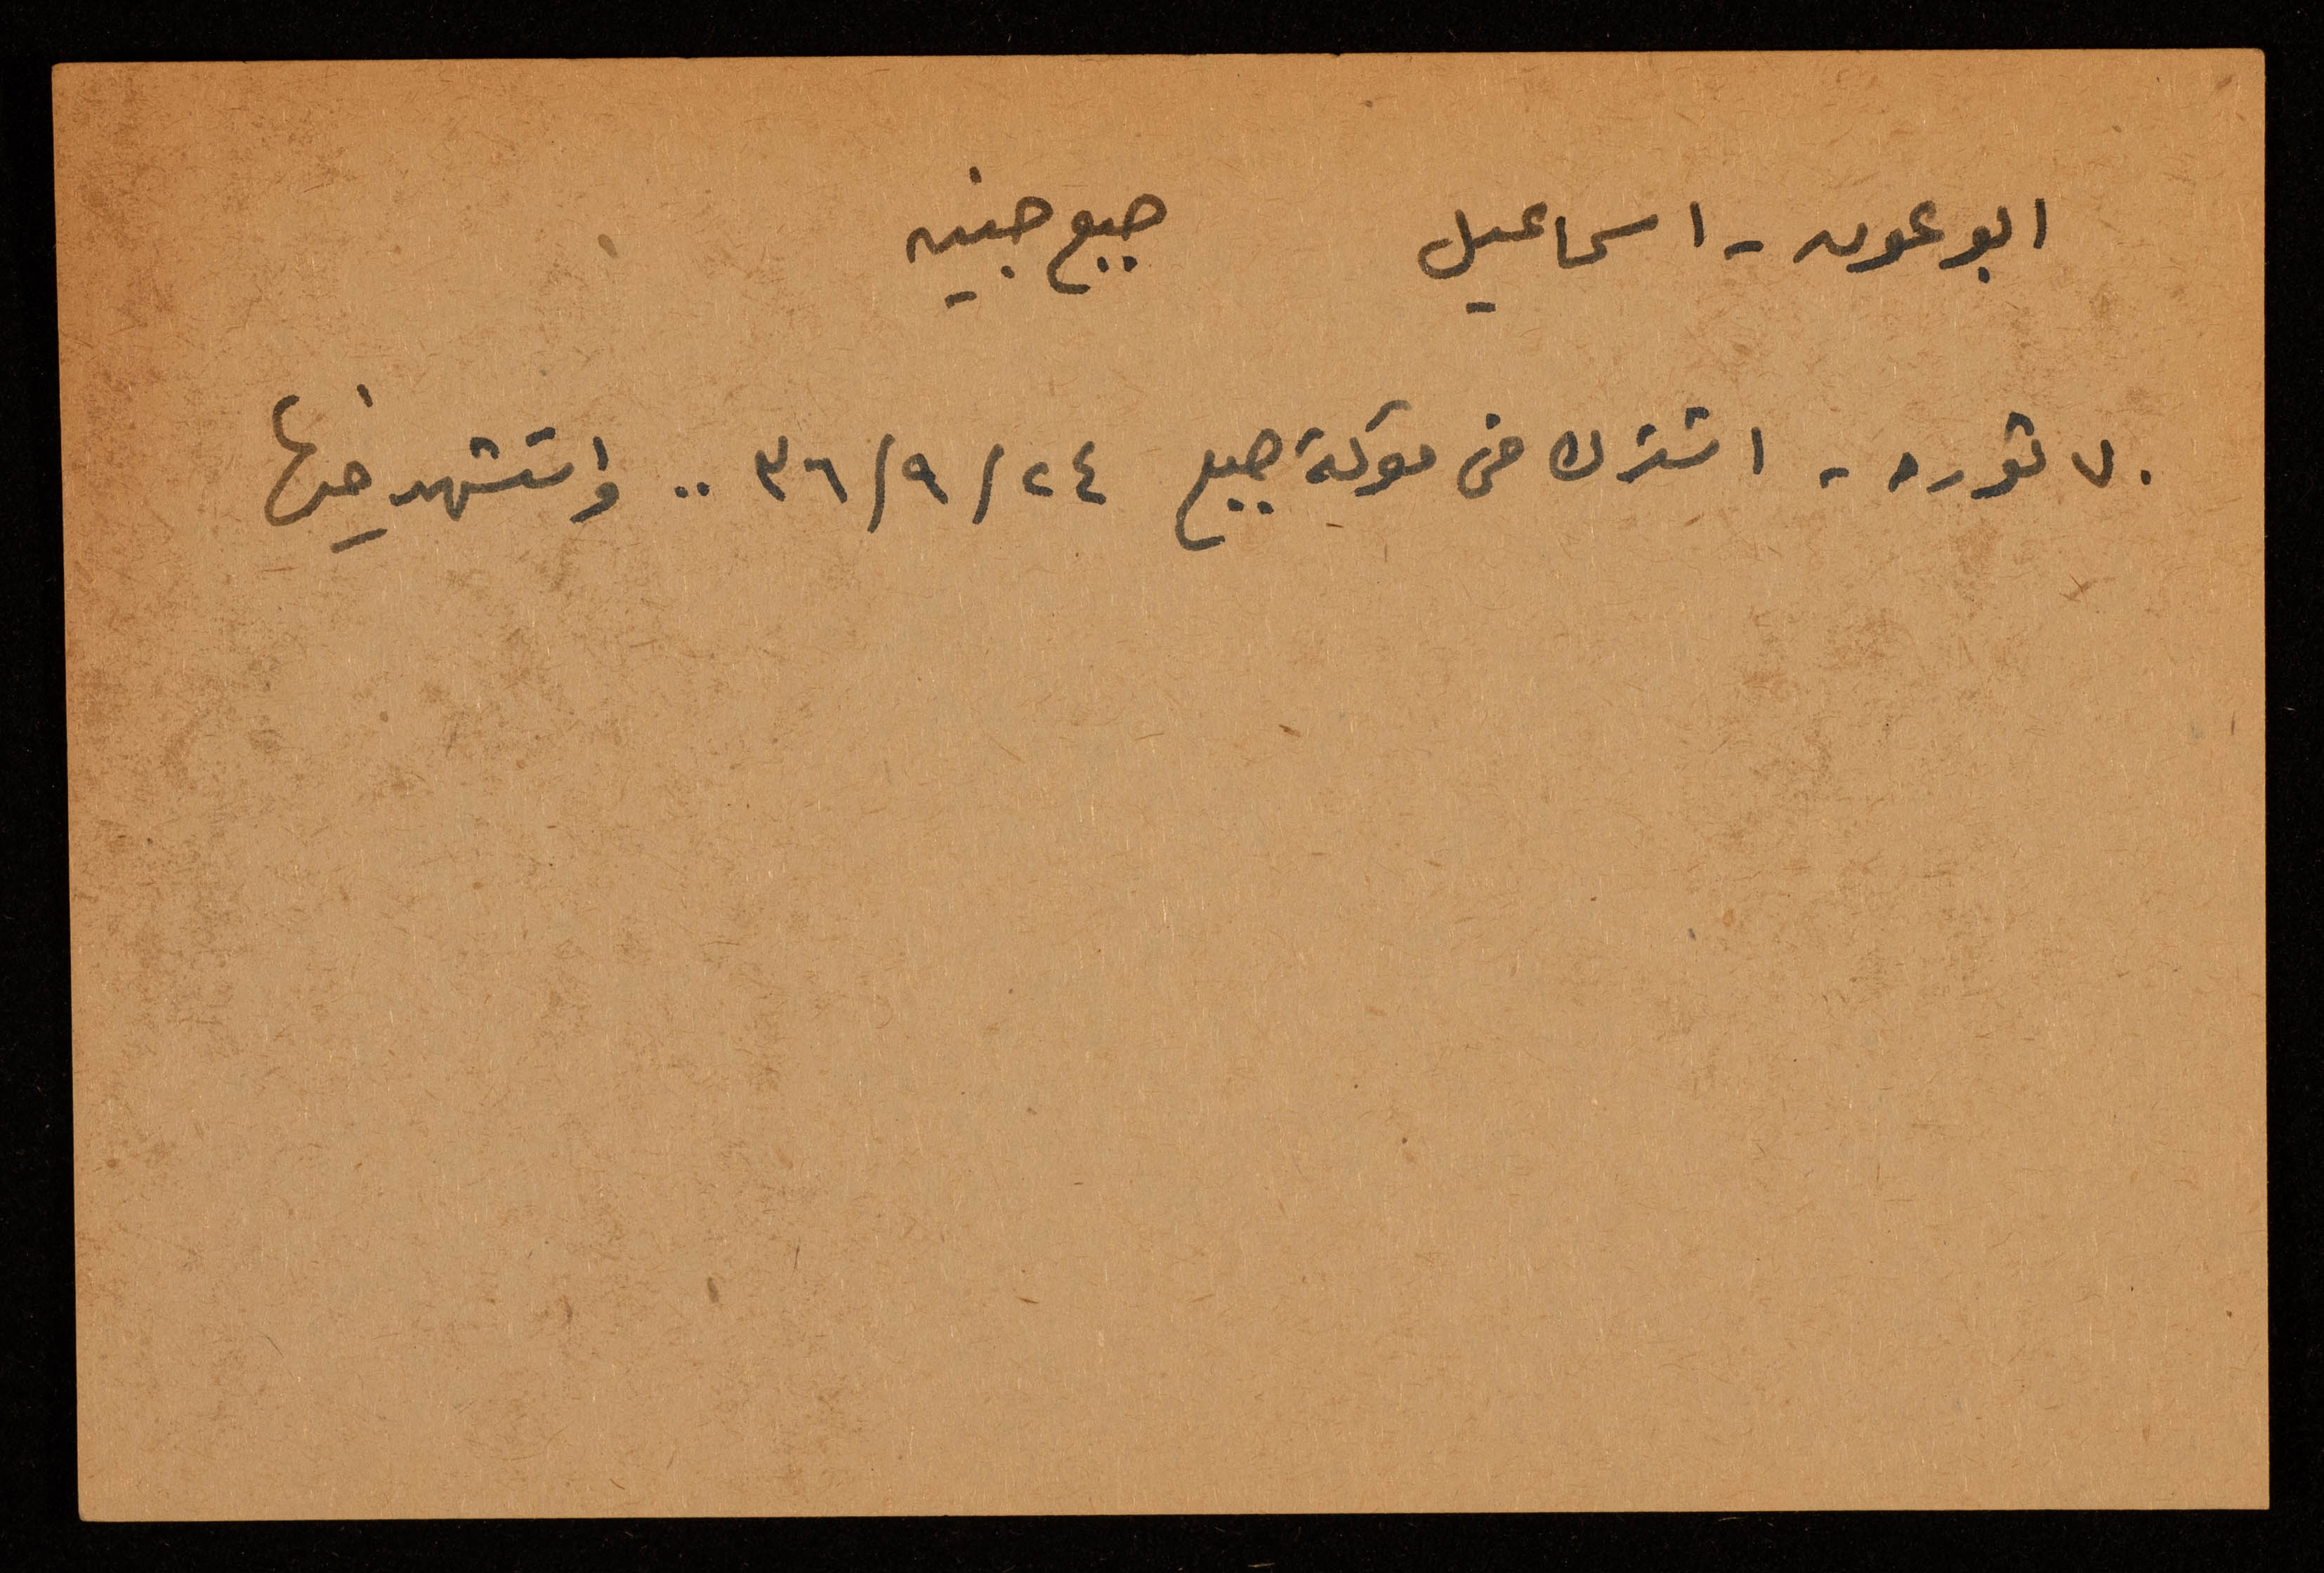 ابو عون - اسماعيل جبع جنين
ن ثوره - اشترك في معركة جبع ٢٤/٩/٣٦ .. واستشهد فيها